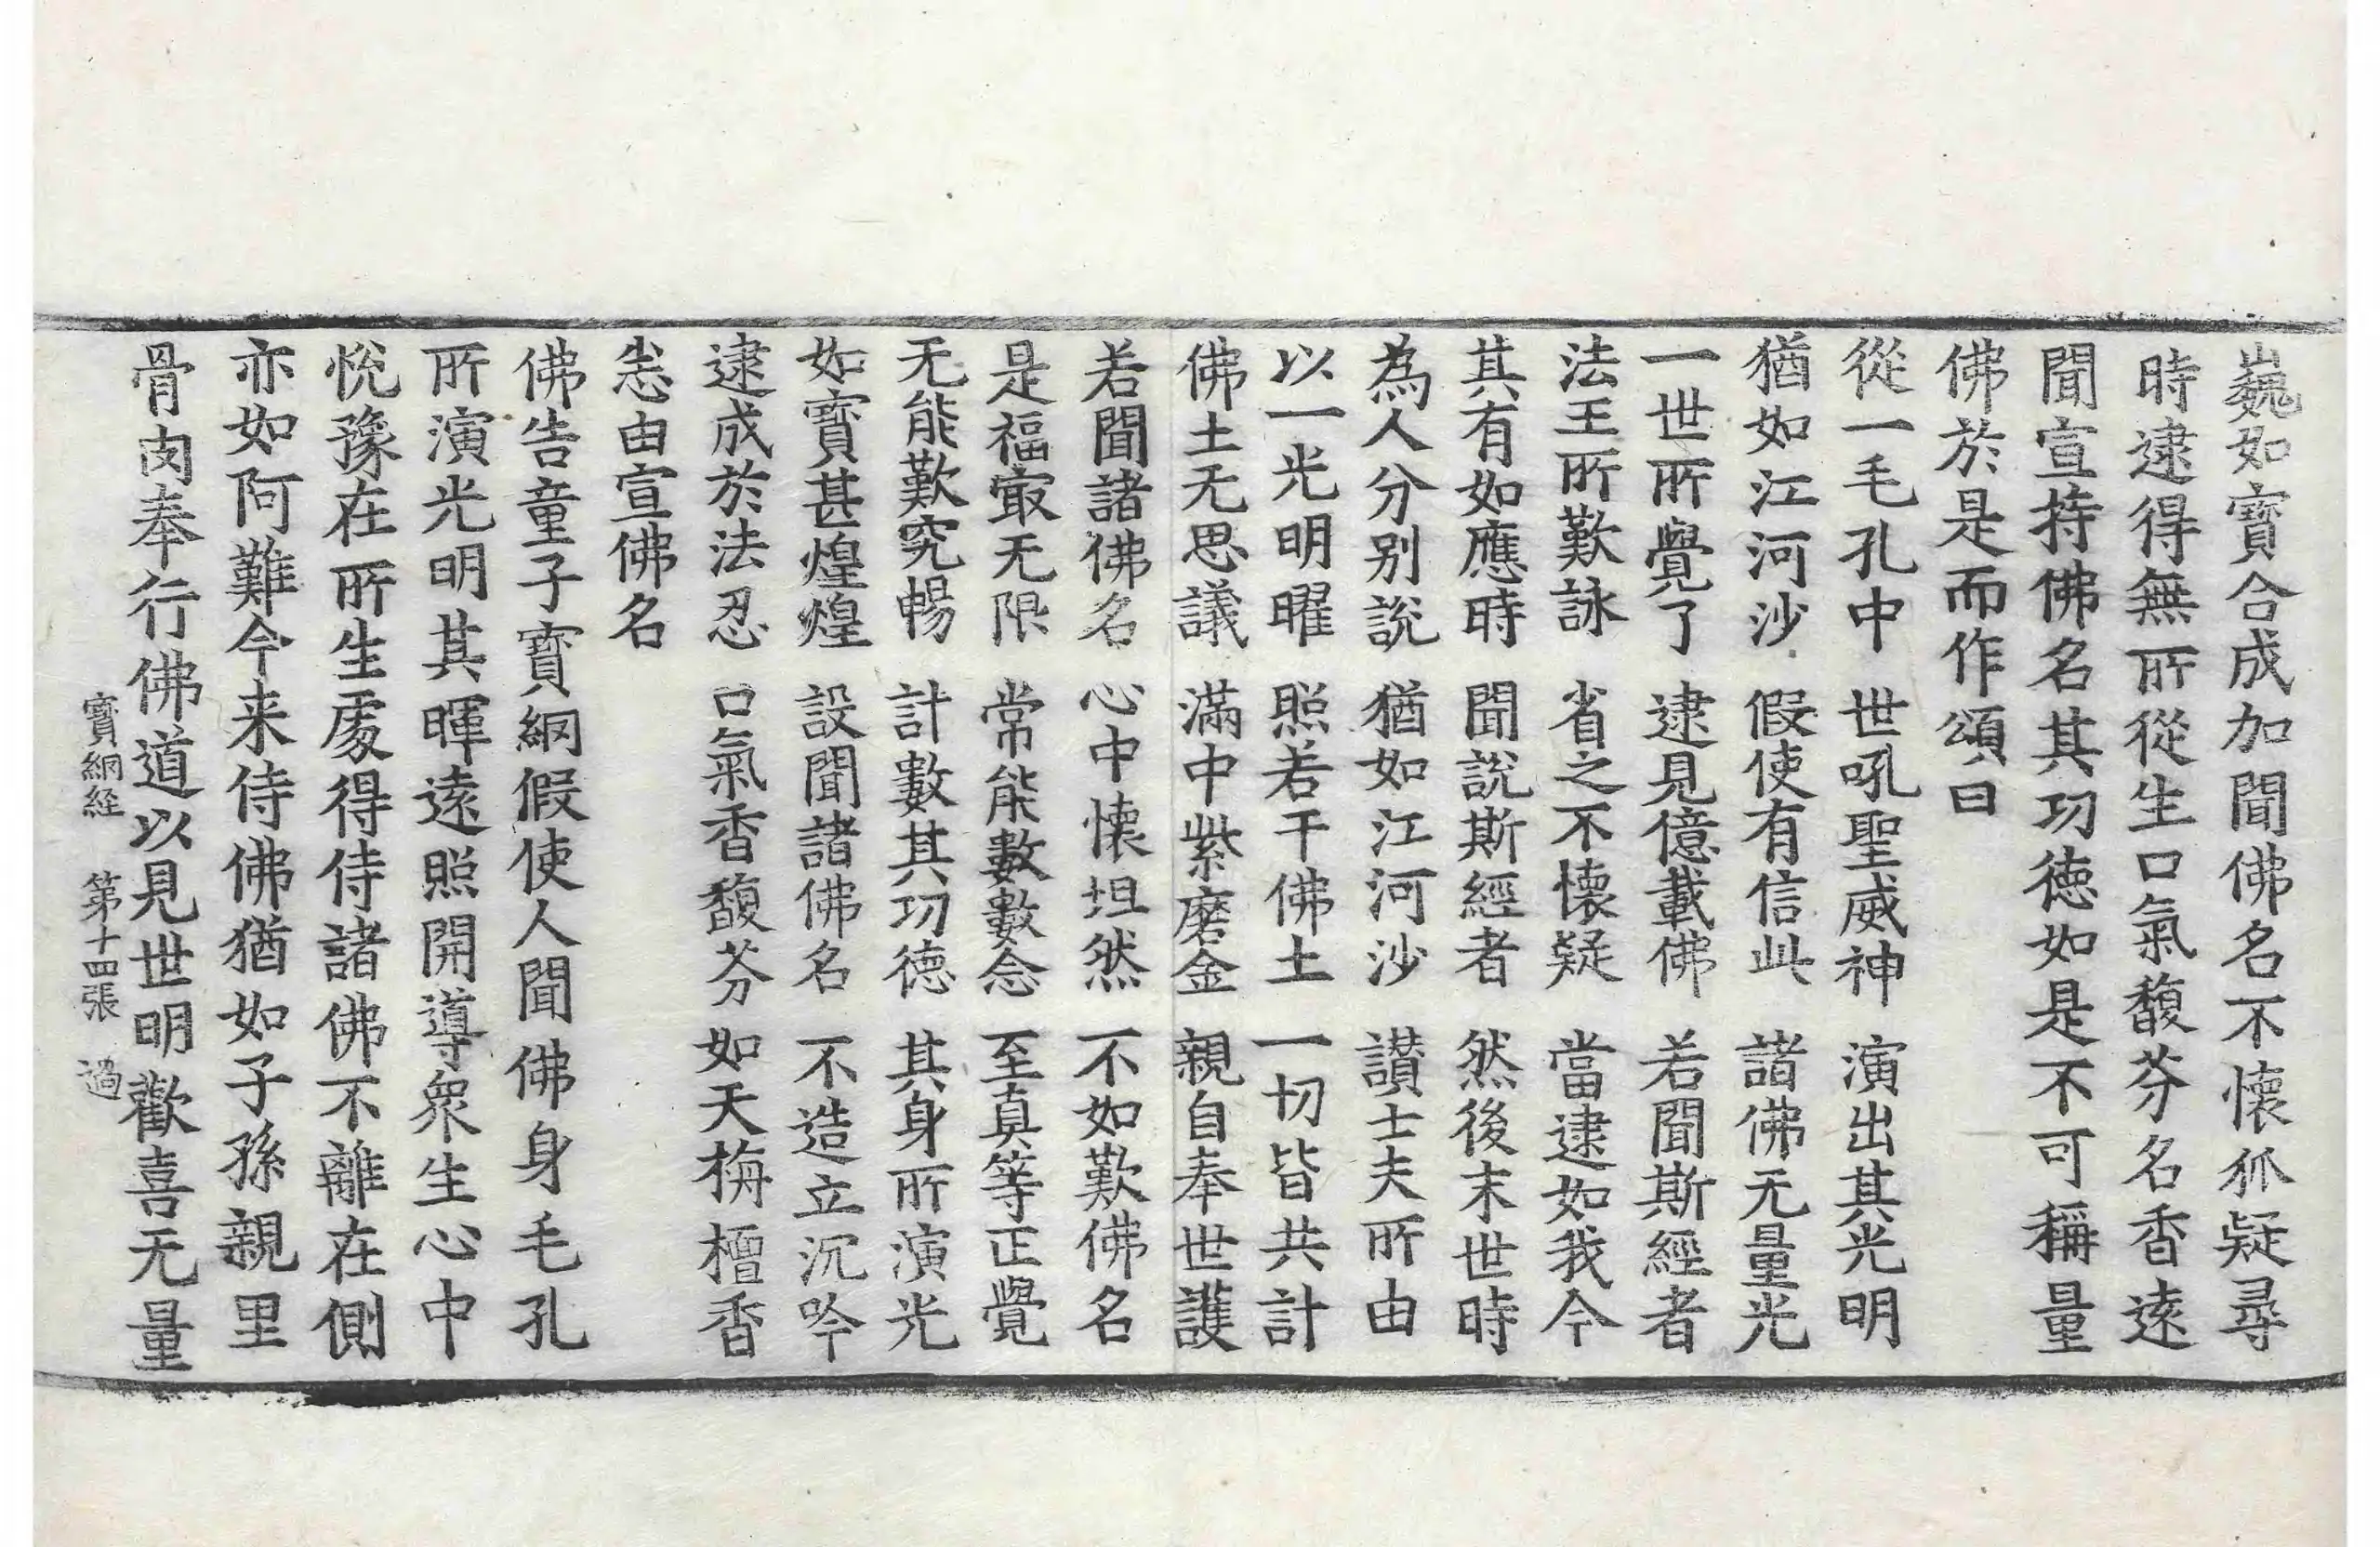 巍如寶合成加聞佛名不懷狐疑尋
時逮得無所從生口氣馥芬名香遠
聞宣持佛名其功德如是不可稱量
佛於是而作頌曰
從一毛孔中　世吼聖威神　演出其光明
猶如江河沙　假使有信此　諸佛无量光
一世所覺了　逮見億載佛　若聞斯經者
法王所歎詠　省之不懷疑　當逮如我今
其有如應時　聞說斯經者　然後末世時
為人分别說　猶如江河沙　讃士夫所由
以一光明曜　照若干佛土　一切皆共計
佛土无思議　滿中紫磨金　親自奉世護
若聞諸佛名　心中懷坦然　不如歎佛名
是福㝡无限　常能數數念　至真等正覺
无能歎究暢　計數其功德　其身所演光
如寶甚煌煌　設聞諸佛名　不造立沉吟
逮成於法忍　口氣香馥芬　如天栴檀香
恙由宣佛名
佛告童子寶網假使人聞佛身毛孔
所演光明其暉遠照開導衆生心中
悅豫在所生處得侍諸佛不離在側
亦如阿難今来侍佛猶如子孫親里
骨肉奉行佛道以見世明歡喜无量
寶網経　第十四張　過